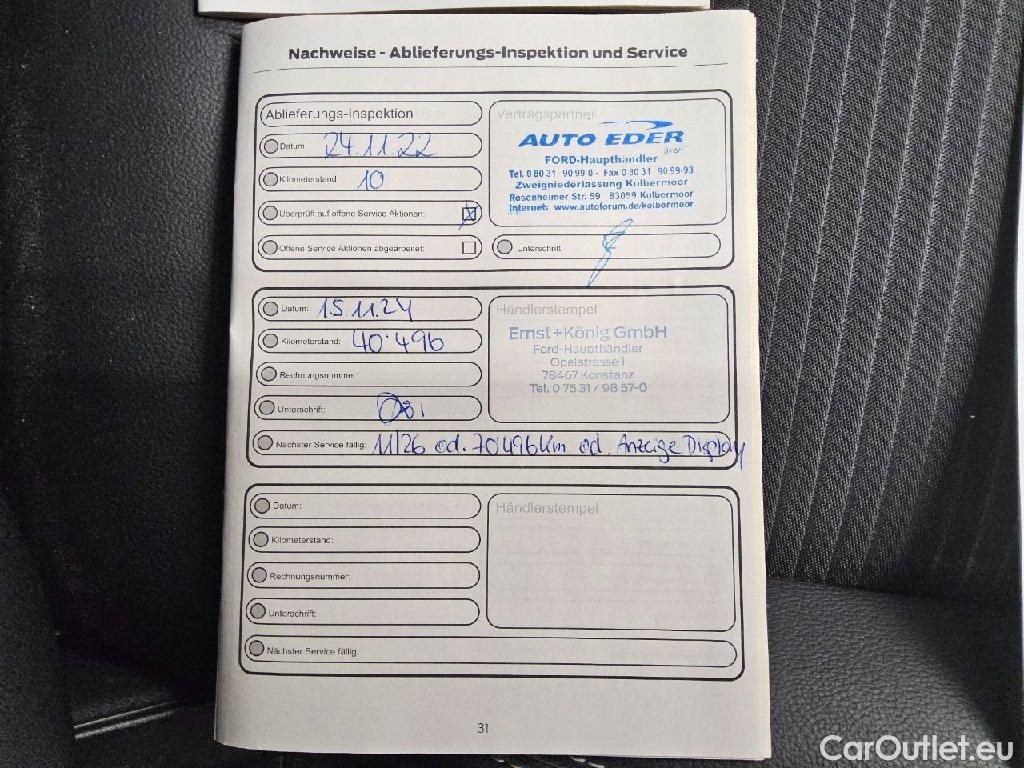 Nachweise - Ablieferungs-Inspektion und Service
Ablieferungs-Inspektion
Datum 24.11.22
Kilometerstand 10
Überprüft auf offene Service Aktionen:
Offene Service Aktionen abgearbeitet:
Vertragspartner
AUTO EDER
GmbH
FORD-Haupthändler
Tel. 0 80 31 - 90 99 0 - Fax 0 80 31 90 99-93
Zweigniederlassung Kolbermoor
Rosenheimer Str. 59 83059 Kolbermoor
Internet: www.autoforum.de/kolbermoor
Unterschrift
Datum: 15.11.24
Kilometerstand: 40.496
Rechnungsnummer
Unterschrift:
Nächster Service fällig: 11/26 od. 70496 Km od. Anzeige Display
Händlerstempel
Ernst+König GmbH
Ford-Haupthändler
Opelstrasse 1
78467 Konstanz
Tel. 0 75 31 / 98 57-0
Datum:
Kilometerstand:
Rechnungsnummer:
Unterschrift:
Nächster Service fällig
Händlerstempel
31
CarOutlet.eu